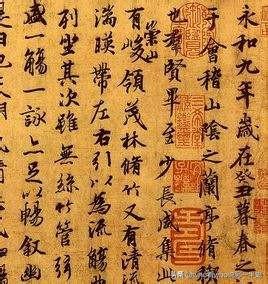 永和九年歲在癸丑暮春之
于會稽山陰之蘭亭脩
也羣賢畢至少長咸集此
有崇山峻領茂林脩竹又有清
湍暎帶左右引以為流觴
列坐其次雖無絲竹管弦
盛一觴一詠上足以暢叙幽